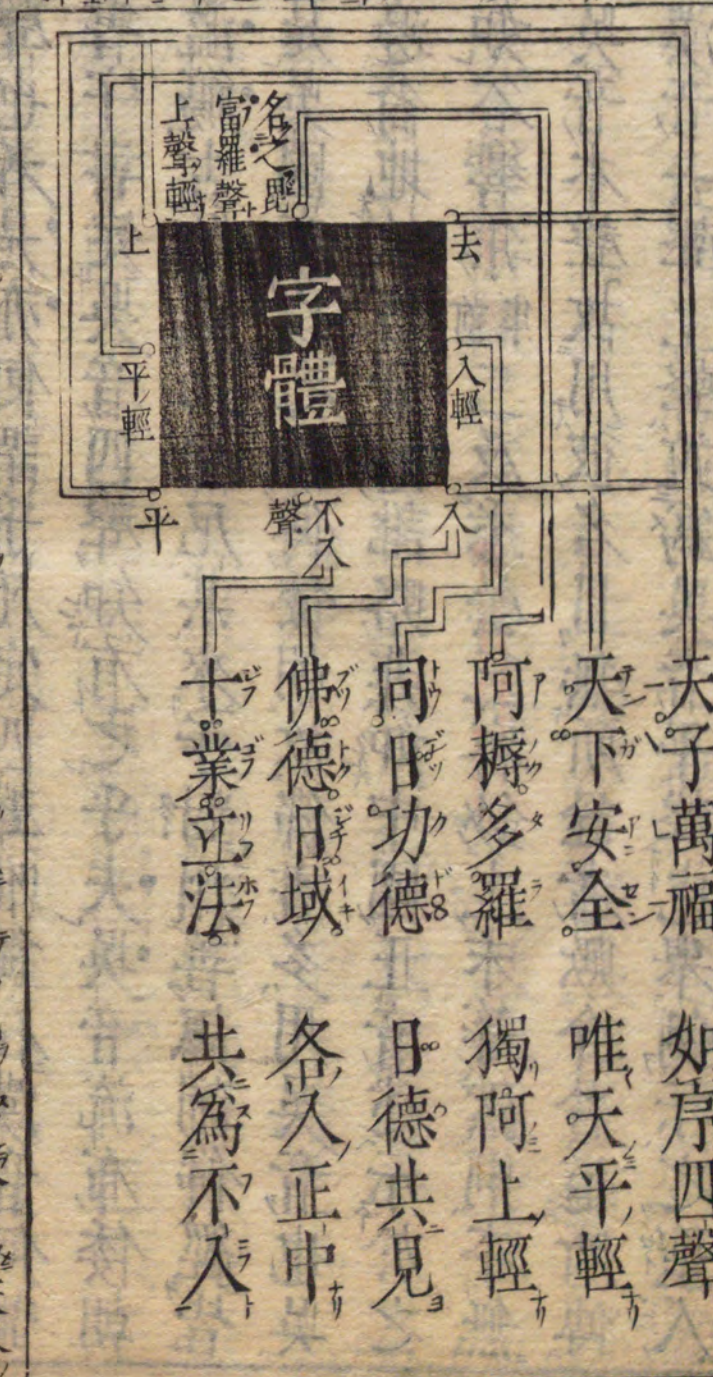 名之毘
富羅聲
上聲輕
字體
上
去
平輕
入輕
平
不入
聲
入
天子萬福 如序四聲
天下安全 唯天平輕
阿耨多羅 獨阿上輕
同日功德 日德共見
佛德日域 各入正中
十業立法 共為不入